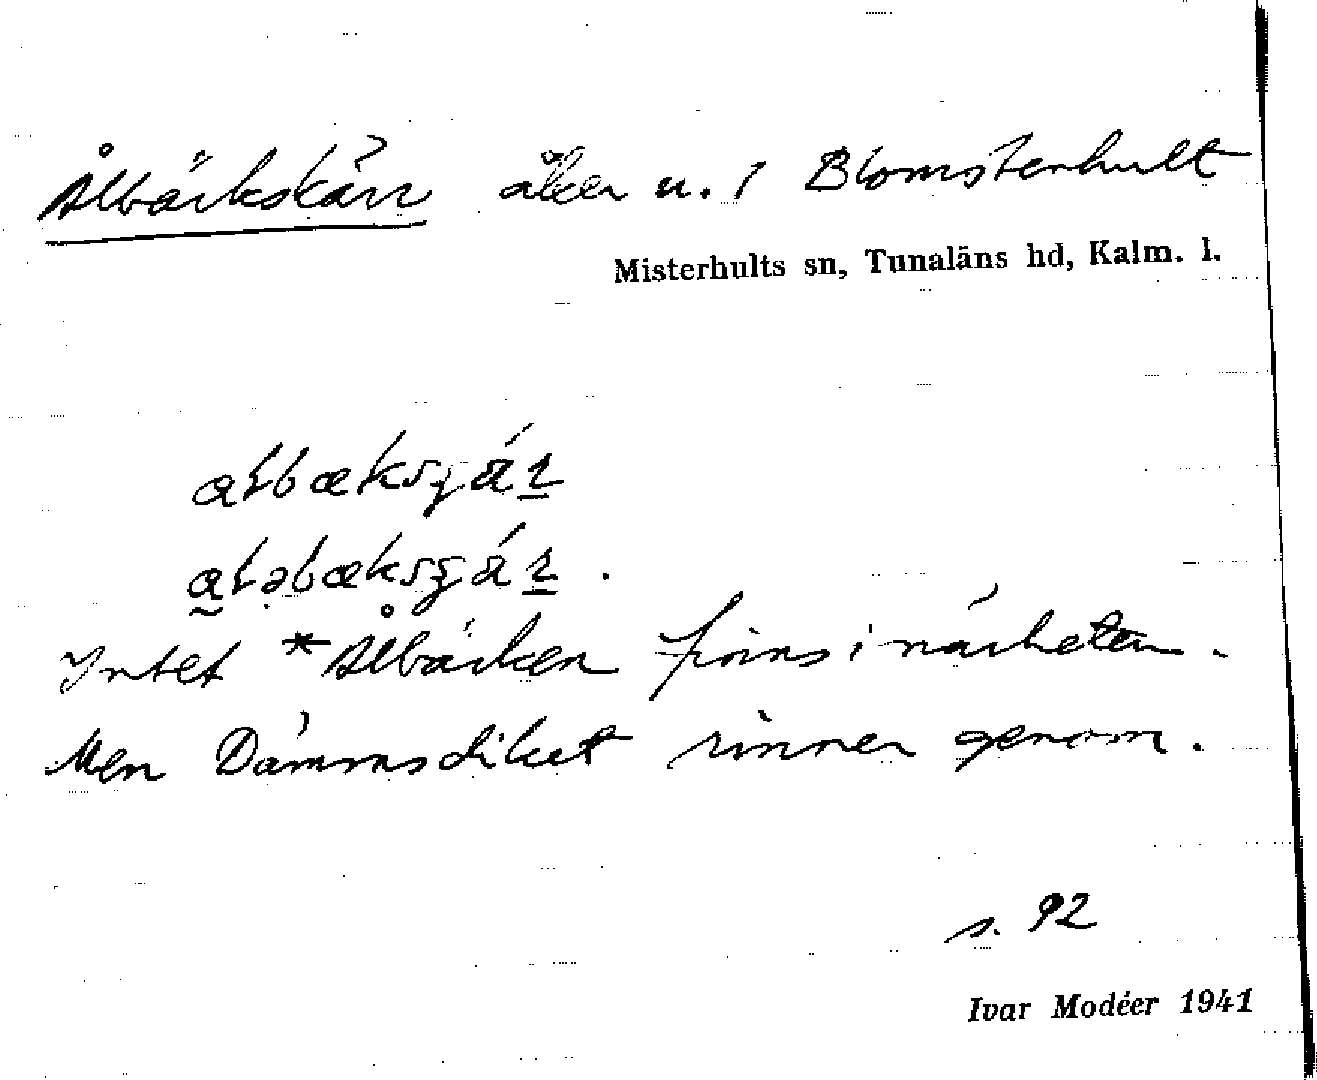 Ålbäckskärr åker u. 1 Blomsterhult
Misterhults sn, Tunaläns hd, Kalm. l.
Intet *Ålbäcken finns i närheten.
Men Dammsdiket rinner genom.
s. 92
Ivar Modéer 1941